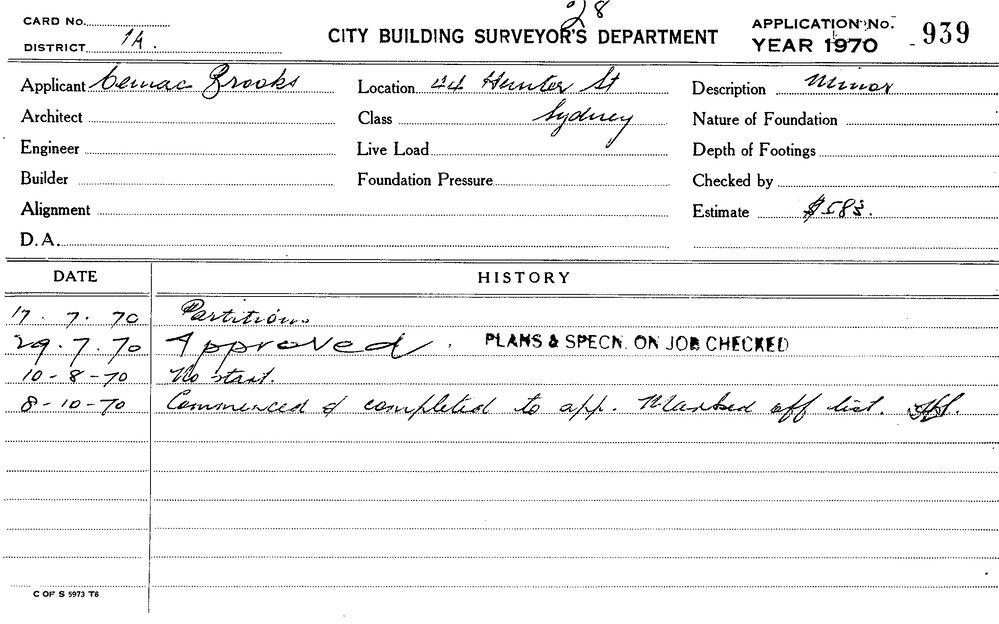 28
CARD No.
DISTRICT 1A.
CITY BUILDING SURVEYOR'S DEPARTMENT
APPLICATION No.
YEAR 1970 - 939
Applicant Cemac Brooks Location 44 Hunter St Description Minor
Architect Class Sydney Nature of Foundation
Engineer Live Load Depth of Footings
Builder Foundation Pressure Checked by
Alignment Estimate $583.
D.A.
DATE HISTORY
17.7.70 Partitions
29.7.70 Approved. PLANS & SPECN. ON JOB CHECKED
10-8-70 No start.
8-10-70 Commenced & completed to app. Marked off list.
C OF S 5973 T6